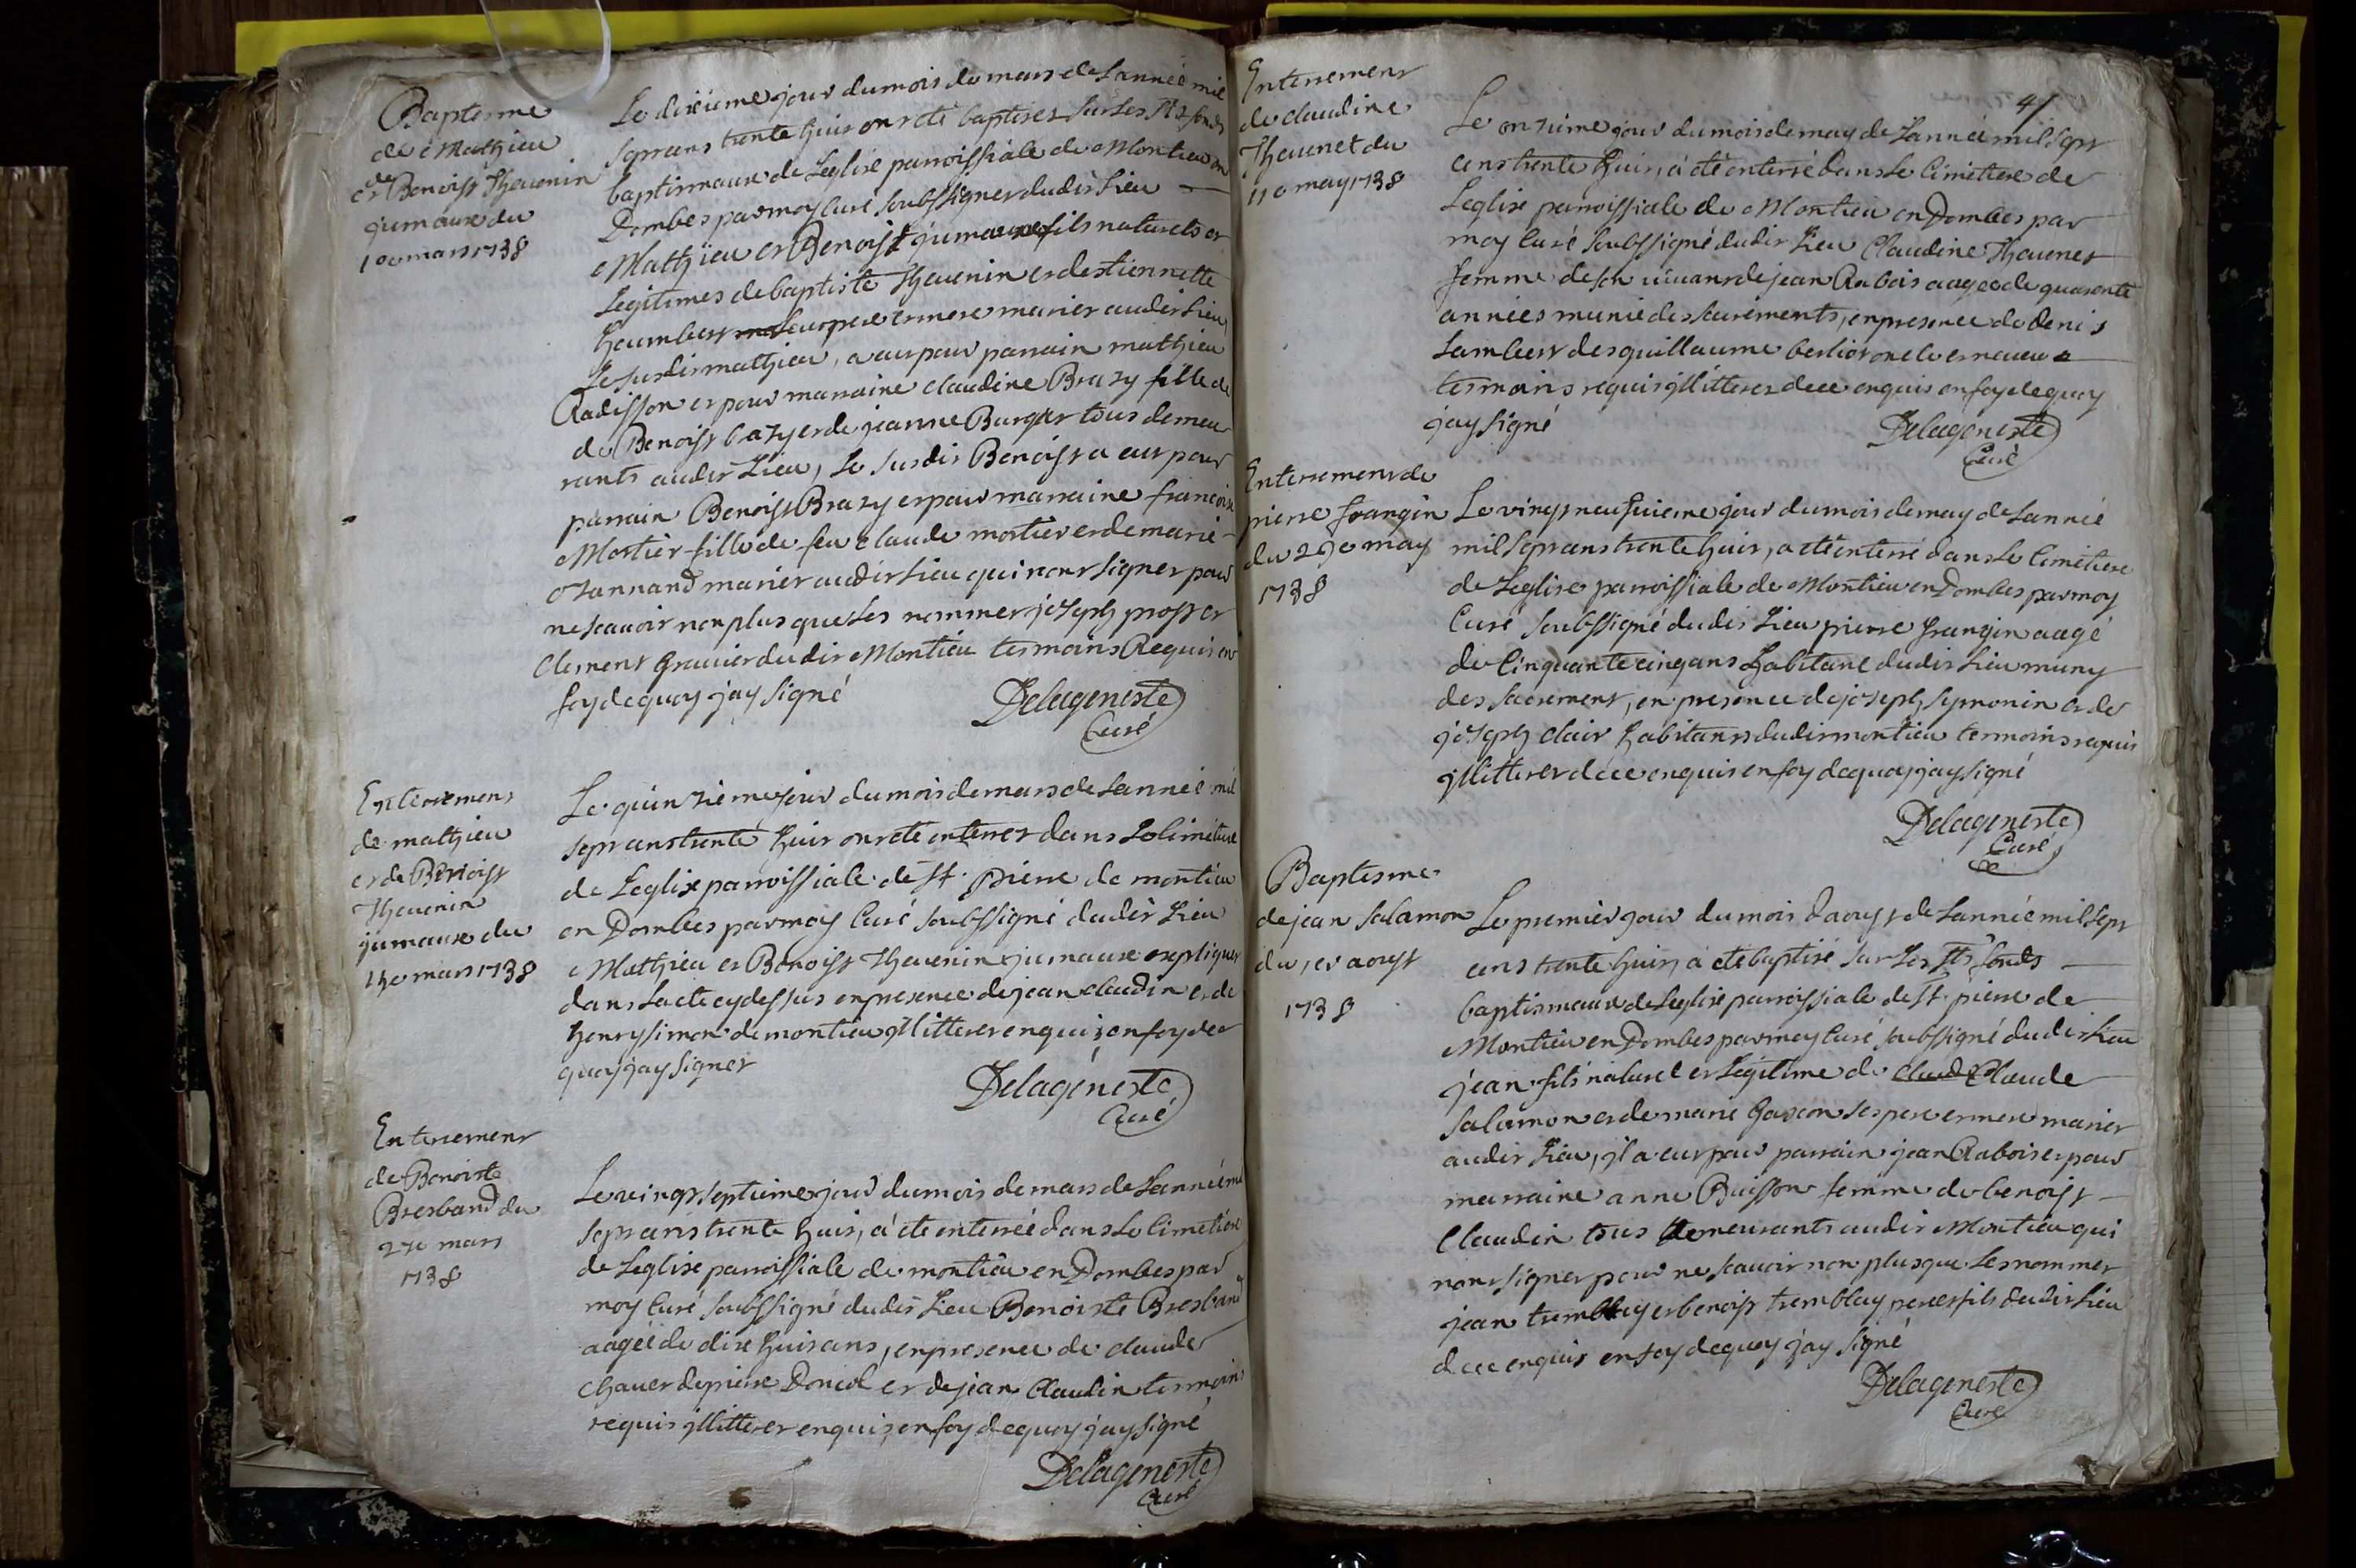 Baptesme
de Mathieu
et de Benoist Thevenin
jumaux du
10e mars 1738
Le dixieme jour du mois de mars de Lannee mil
sept cens trente huit ont eté baptisez sur les Sts fonds
baptismaux de Leglise parroissiale de Montieu en
Dombes par moy Curé soubssigner dudit Lieu
Mathieu et Benoist jumaux fils naturels et
Legitimes de baptiste Thevenin et destiennette
heumbert leur pere et mere marier audit Lieu
Le susdit mathieu, a eut pour parrain mathieu
Radisson et pour marraine claudine Brazy fille de
de Benoist bazy et de jeanne Burger tous demeu
rants audit Lieu, Le susdit Benoist a eut pour
parrain Benoist Brazy et pour marraine francoise
Mortier fille de feu claude mortier et de marie
Jannand marier audit Lieu qui nont signer pour
ne scavoir non plus que les nommer joseph prost et
Clement Gravier dudit Montieu tesmoins Requis en
foy de quoy jay signé
Delageneste
Curé
Enterement
de mathieu
et de Benoist
Thevenin
jumaux du
15e mars 1738
Le quinzieme jour du mois de mars de Lanneé mil
sept cens trente huit ont eté enterrez dans Le Cimetiere
de Leglise parroissiale de St. Pierre de montieu
en Dombes par moy Curé soubssigné dudit Lieu
Mathieu et Benoist Thevenin jumaux expliquer
dans Lacte cy dessus en presence de jean claudin et de
henry simon de montieu yllitterer enquis en foy de
quoy jay signer
Delageneste
Curé
Enterrement
de Benoiste
Bresband du
27e mars
1738
Le vingt septieme jour du mois de mars de Lanneé mil
sept cens trente huit, á eté enterrée dans Le Cimetiere
de Leglise parroissiale de montieu en Dombes par
moy Curé soubssigné dudit Lieu Benoiste Bresband
aageé de dix huit ans, en presence de claude
chavet de pierre Doncol et de jean Claudin tesmoins
requis yllitterer enquis, en foy de quoy jay signé
Delageneste
Curé
41
Enterrement
de claudine
Thevenet du
11e may 1738
Le onzieme jour du mois de may de Lanneé mil sept
cens trente huit, á eté enterré dans Le Cimetiere de
Leglise parroissiale de Montieu en Dombes par
moy Curé soubssigné dudit Lieu Claudine Thevenet
femme de son vivant de jean Rabois aageé de quarente
années munie des sacrements, en presence de denis
Lambert de guillaume berliot oncle et neveu
tesmoins requis yllitterer de ce enquis en foy de quoy
jay signé
Delageneste
Curé
Enterrement de
pierre frangin
du 29e may
1738
Le vingt neufvieme jour du mois de may de Lanneé
mil sept cens trente huit, a eté enterré dans Le Cimetiere
de Leglise parroissiale de Montieu en Dombes par moy
Curé soubssigné dudit Lieu pierre frangin aagé
de Cinquante cinq ans habitant dudit Lieu muny
des sacrement, en presence de joseph symonin et de
joseph clair habitants dudit montieu tesmoins requis
yllitterer de ce enquis en foy de quoy jay signé
Delageneste
Curé
Baptesme
de jean salamon
du 1er aoust
1738
Le premier jour du mois daoust de Lanneé mil sept
cens trente huit, á eté baptisé sur Les Sts fonds
baptismaux de Leglise parroissiale de St. pierre de
Montieu en Dombes par moy Curé soubssigné dudit Lieu
jean fils naturel et Legitime de claud Claude
salamon et de marie Gascon ses pere et mere marier
audit Lieu, yl a eut pour parrain jean Rabois et pour
marraine anne Buisson femme de benoist
Claudin tous demeurants audit Montieu qui
nont signer pour ne scavoir non plus que Les nommer
jean tremblay et benoist tremblay pere et fils dudit Lieu
de ce enquis en foy de quoy jay signé
Delageneste
Curé